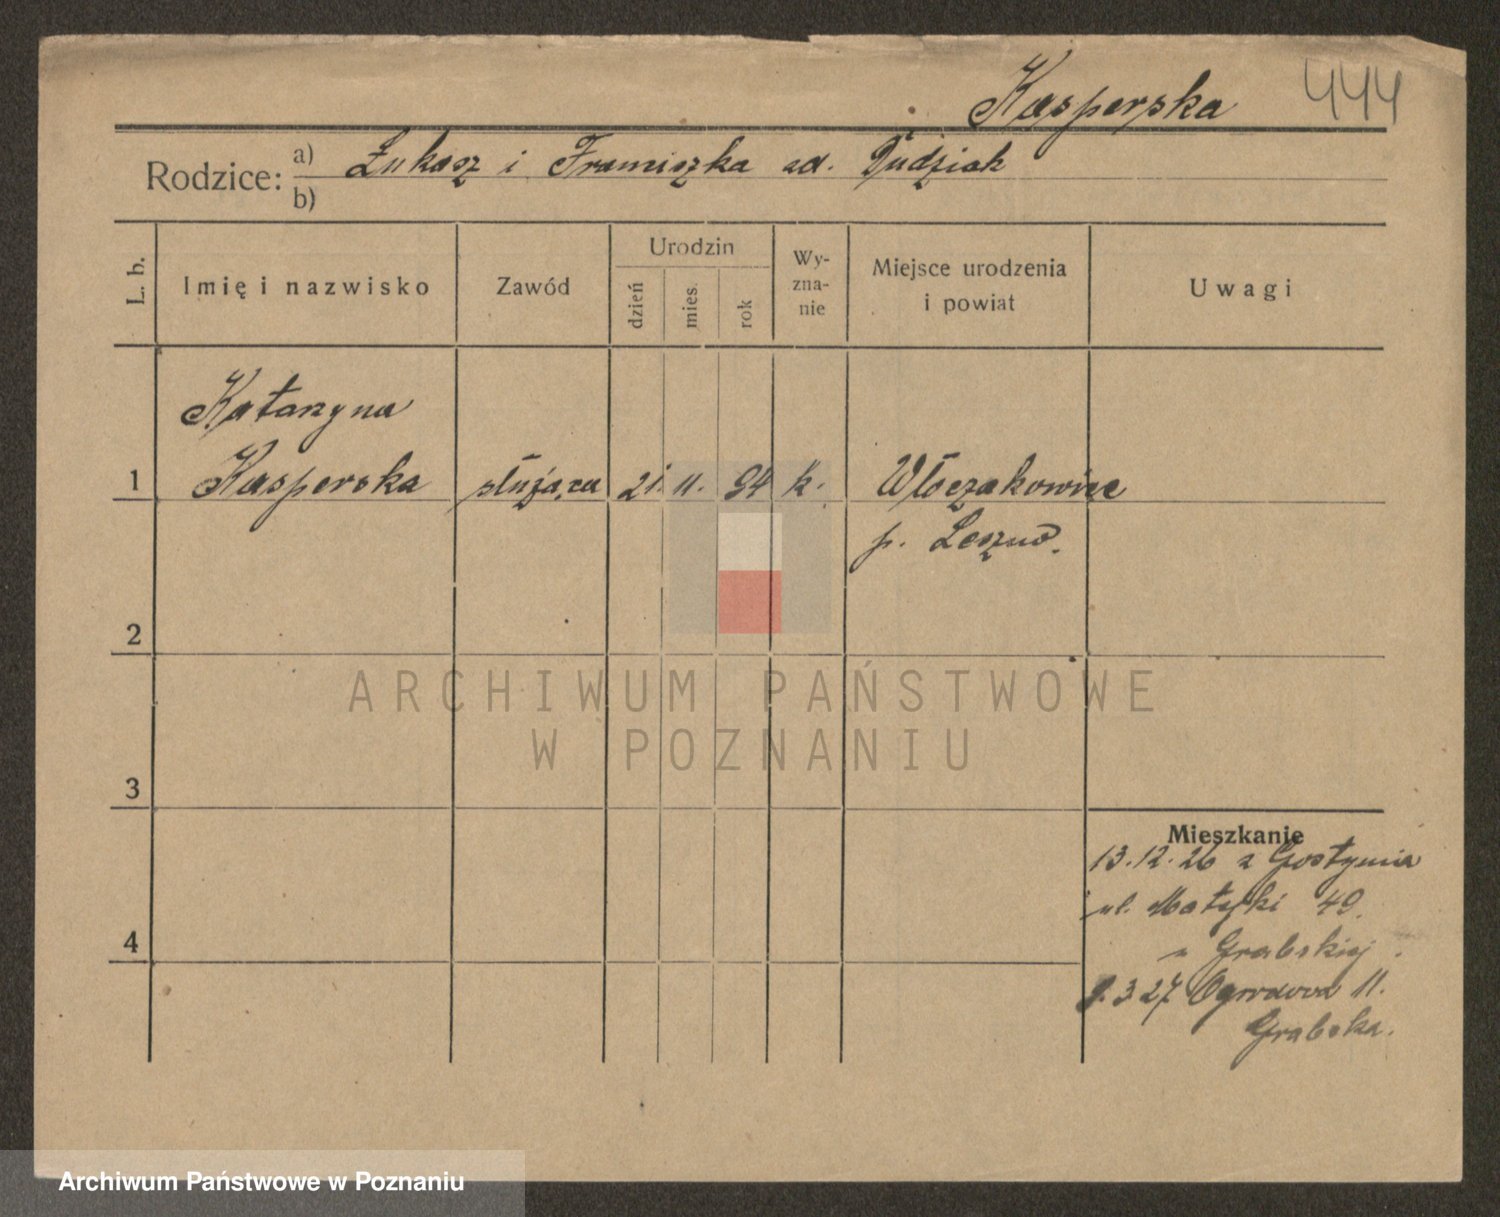 Kasperska 444
Rodzice: a) Łukasz i Franciszka zd. Dudziak
b)
L. b. Imię i nazwisko Zawód Urodzin dzień mies. rok Wyznanie Miejsce urodzenia i powiat Uwagi
Katarzyna
1 Kasperska służąca 21. 11. 94 k. Włoszakowice
p. Leszno.
2
ARCHIWUM PAŃSTWOWE
W POZNANIU
3
Mieszkanie
13.12.26 z Gostynia
ul. Matejki 49.
u Grabskiej
4
9.3.27 Ogrodowa 11.
Grabska.
Archiwum Państwowe w Poznaniu